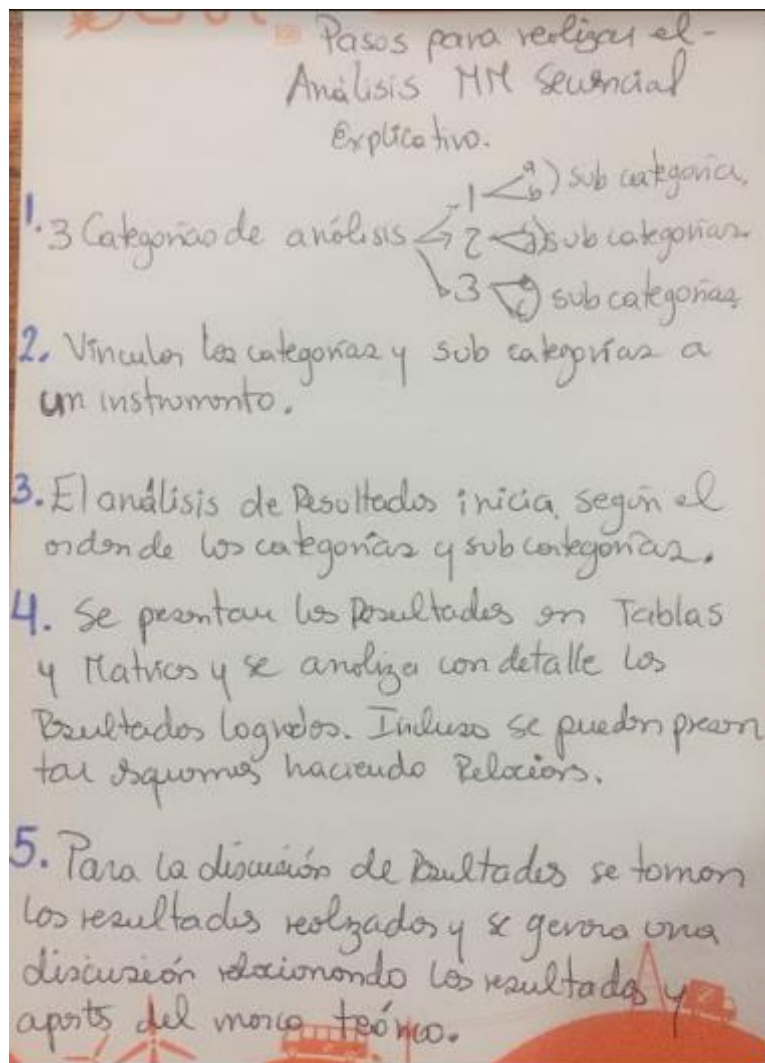 Pasos para realizar el-
Análisis MM Secuencial
Explicativo.
1. 3 Categorías de análisis
1 a) b) sub categoría.
2 sub categorías.
3 sub categorías.
2. Vincular las categorías y sub categorías a
un instrumento.
3. El análisis de Resultados inicia según el
orden de las categorías y sub categorías.
4. Se presentan los Resultados en Tablas
y Matrices y se analiza con detalle los
Resultados logrados. Incluso se pueden presen
tar esquemas haciendo Relaciones.
5. Para la discusión de Resultados se toman
los resultados realizados y se genera una
discusión relacionando los resultados y
aportes del marco teórico.